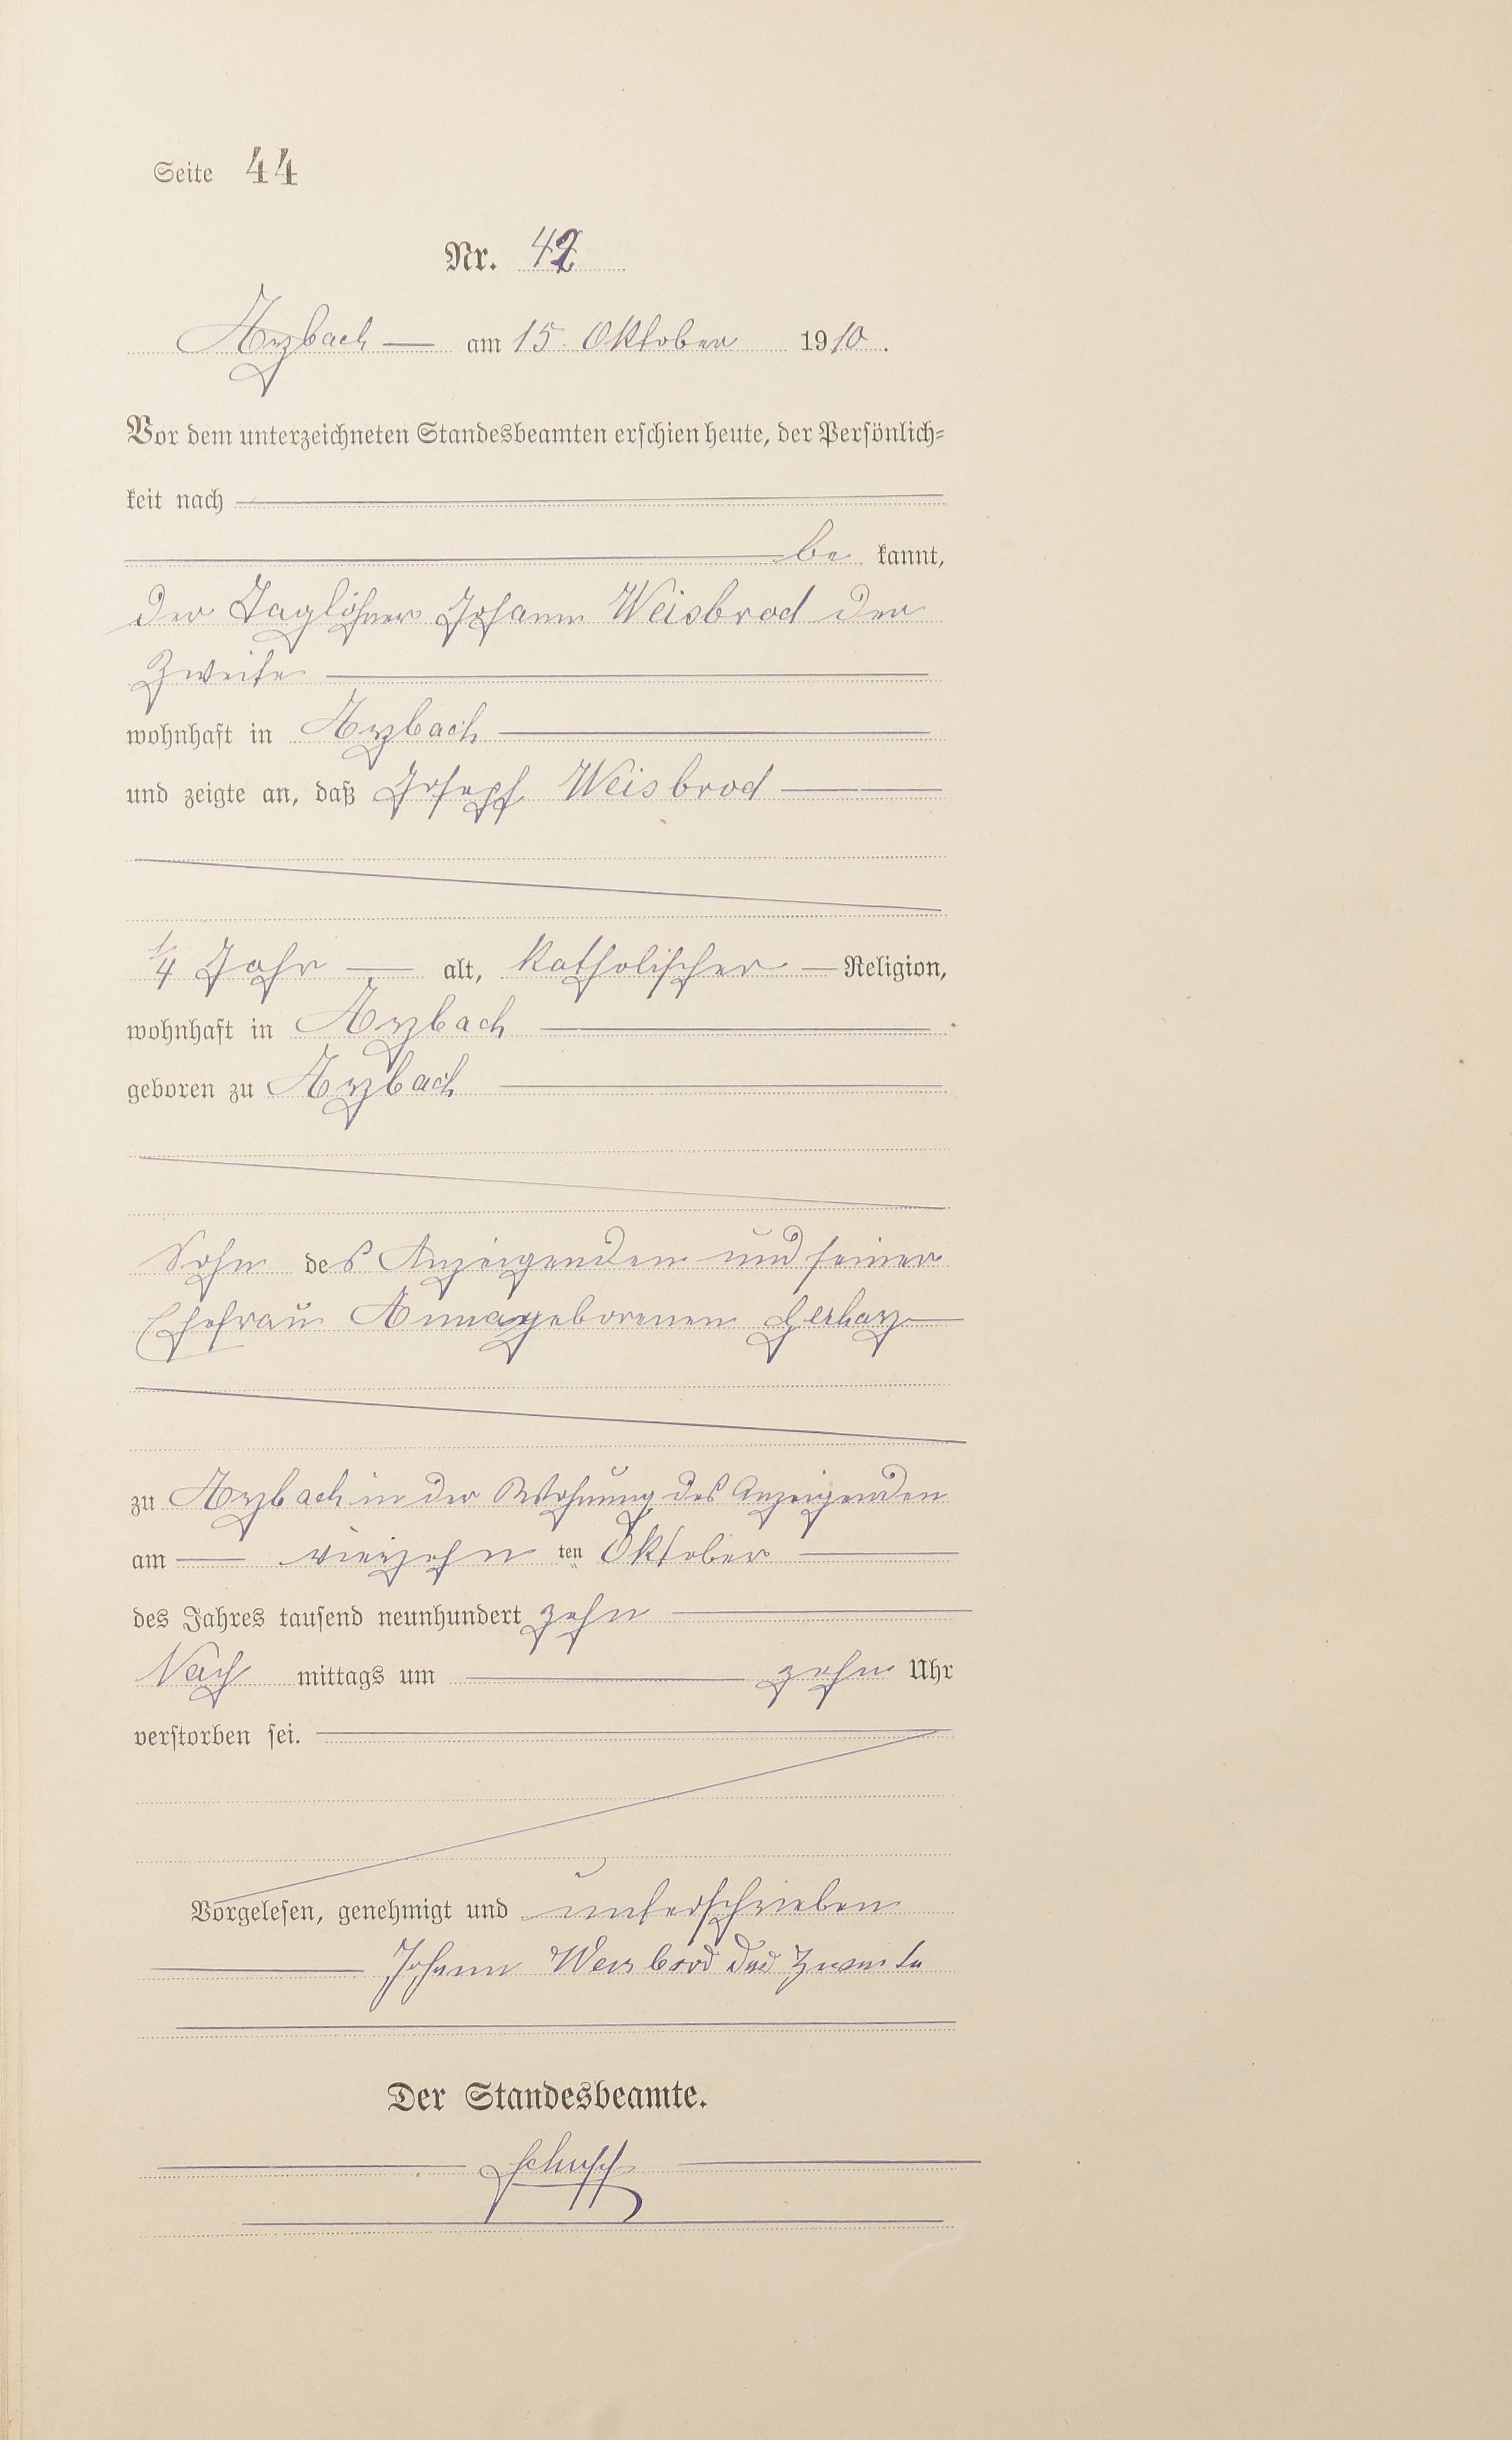 Seite 44
Nr. 42
Arzbach — am 15. Oktober 1910.
Vor dem unterzeichneten Standesbeamten erschien heute, der Persönlich=
keit nach
be kannt,
der Taglöhner Johann Weisbrod der
Zweite
wohnhaft in Arzbach
und zeigte an, daß Joseph Weisbrod
1/4 Jahr — alt, katholischer — Religion,
wohnhaft in Arzbach
geboren zu Arzbach
Sohn des Anzeigenden und seiner
Ehefrau Anna geborenen Gerharz
zu Arzbach in der Wohnung des Anzeigenden
am — vierzehn ten Oktober
des Jahres tausend neunhundert zehn
Nach mittags um zehn Uhr
verstorben sei.
Vorgelesen, genehmigt und unterschrieben
Johann Weisbrod der Zweite
Der Standesbeamte.